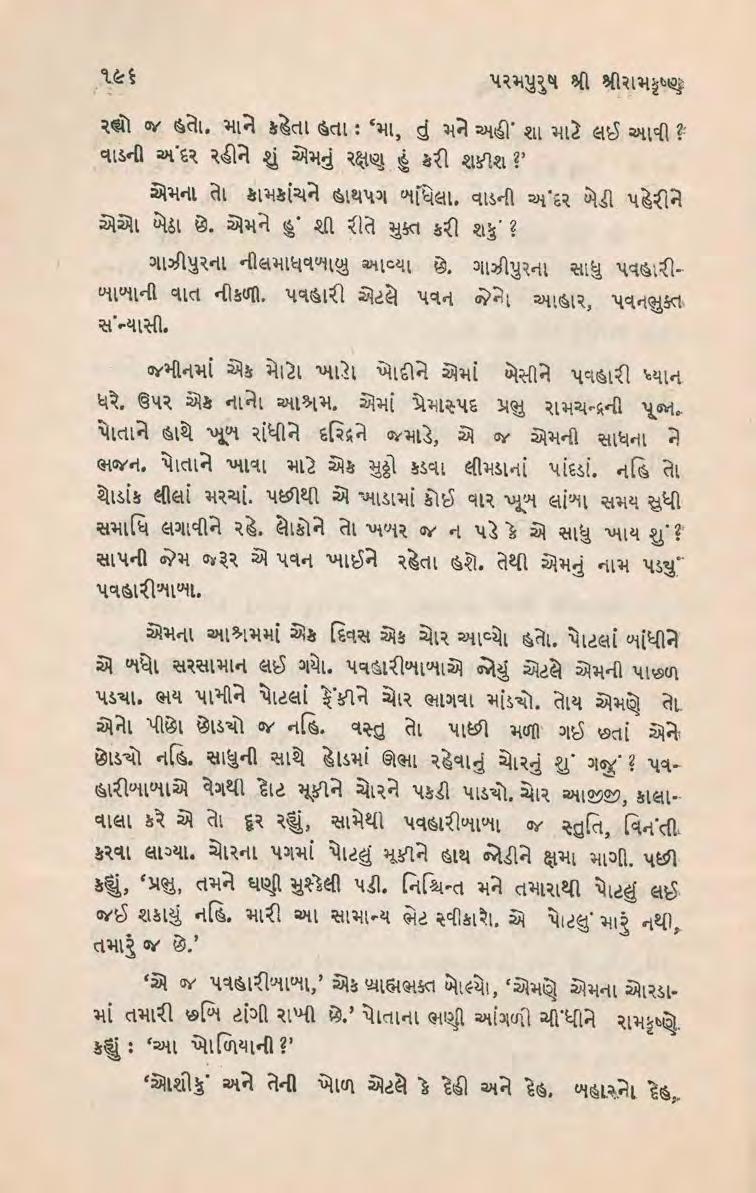 ૧૯૬ પરમપુરુષ શ્રી શ્રીરામકૃષ્ણ
રહ્યો જ હતો. માને કહેતા હતા : ‘મા, તું મને અહીં શા માટે લઈ આવી ?
વાડની અંદર રહીને શું એમનું રક્ષણ હું કરી શકીશ ?’
એમના તો કામકાંચને હાથપગ બાંધેલા. વાડની અંદર બેડી પહેરીને
એઓ બેઠા છે. એમને હું શી રીતે મુક્ત કરી શકું ?
ગાઝીપુરના નીલમાધવબાબુ આવ્યા છે. ગાઝીપુરના સાધુ પવહારી-
બાબાની વાત નીકળી. પવહારી એટલે પવન જેનો આહાર, પવનભુક્ત
સંન્યાસી.
જમીનમાં એક મોટો ખાડો ખોદીને એમાં બેસીને પવહારી ધ્યાન
ધરે. ઉપર એક નાનો આશ્રમ. એમાં પ્રેમાસ્પદ પ્રભુ રામચન્દ્રની પૂજા.
પોતાને હાથે ખૂબ રાંધીને દરિદ્રને જમાડે, એ જ એમની સાધના ને
ભજન. પોતાને ખાવા માટે એક મુઠ્ઠો કડવા લીમડાનાં પાંદડાં. નહિ તો
થોડાંક લીલાં મરચાં. પછીથી એ ખાડામાં કોઈ વાર ખૂબ લાંબા સમય સુધી
સમાધિ લગાવીને રહે. લોકોને તો ખબર જ ન પડે કે એ સાધુ ખાય શું ?
સાપની જેમ જરૂર એ પવન ખાઈને રહેતા હશે. તેથી એમનું નામ પડ્યું
પવહારીબાબા.
એમના આશ્રમમાં એક દિવસ એક ચોર આવ્યો હતો. પોટલાં બાંધીને
એ બધો સરસામાન લઈ ગયો. પવહારીબાબાએ જોયું એટલે એમની પાછળ
પડયા. ભય પામીને પોટલાં ફેંકીને ચોર ભાગવા માંડયો. તોય એમણે તો
એનો પીછો છોડયો જ નહિ. વસ્તુ તો પાછી મળી ગઈ છતાં એને
છોડયો નહિ. સાધુની સાથે હોડમાં ઊભા રહેવાનું ચોરનું શું ગજું ? પવ-
હારીબાબાએ વેગથી દોટ મૂકીને ચોરને પકડી પાડયો. ચોર આજીજી, કાલા-
વાલા કરે એ તો દૂર રહ્યું, સામેથી પવહારીબાબા જ સ્તુતિ, વિનંતી
કરવા લાગ્યા. ચોરના પગમાં પોટલું મૂકીને હાથ જોડીને ક્ષમા માગી. પછી
કહ્યું, ‘પ્રભુ, તમને ઘણી મુશ્કેલી પડી. નિશ્ચિન્ત મને તમારાથી પોટલું લઈ
જઈ શકાયું નહિ. મારી આ સામાન્ય ભેટ સ્વીકારો. એ પોટલું મારું નથી,
તમારું જ છે.’
‘એ જ પવહારીબાબા,’ એક બ્રાહ્મભક્ત બોલ્યો, ‘એમણે એમના ઓરડા-
માં તમારી છબિ ટાંગી રાખી છે.’ પોતાના ભણી આંગળી ચીંધીને રામકૃષ્ણે
કહ્યું : ‘આ ખોળિયાની ?’
‘ઓશીકું અને તેની ખોળ એટલે કે દેહી અને દેહ. બહારનો દેહ,